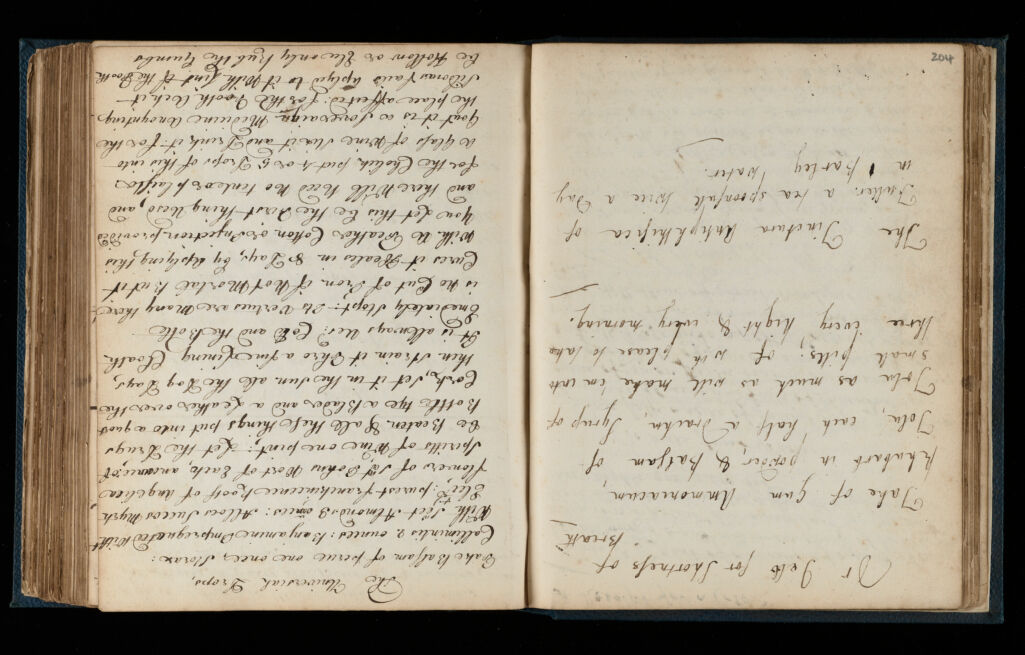 Dr Jebb for Shortness of
Breath
Take of Gum Ammoniacum,
Rhubarb in powder, & Balsam of
Tolu, each half a Drachm, Syrup of
Tolu as much as will make em into
small pills, of wh please to take
three every night & every morning.
The Tinctura Antiphthisica of
Fuller. a tea spoonfull twice a Day
in Barley Water.
204
The Universal Drops,
Take Balsam of perue one ounce, Storax:
Callimintis 2 ounces: Banjamine Impregnated with
with Seet Almonds 3 ounces: Alloes Succos Myrh
Elect: purest frankincence Roots of angelica
flowers of St Johns Wort of Each an ounce, or
Spirrits of Wine one pint; Let the Drugs
be Beaten & all these things put into a quart
Bottle tye a Blader and a Leather over the
Cork, Set it in the Sun all the Dog Days,
then Strain it thro a fine Lining Cloath.
It is allways Use: Cold and the Botle
Emediately Stopt: Its Vertues are Many there
is no Cut of Iron if Not Mortal but it
Cures it Heales in 8 Days, by Applying this
With a Feather Cotton or Injection, provided
You Let this be the First thing Used, and
and there Will Need no tinte or plaister
for the Cholick put 4 or 5 Drops of this into
a Glass of Wine Stir it and Drink it: for the
Gout it is a Soveraign Medicine anoynting
the place affected: for the Tooth Ach it
be Hollow or Else only Rub the Gumbs